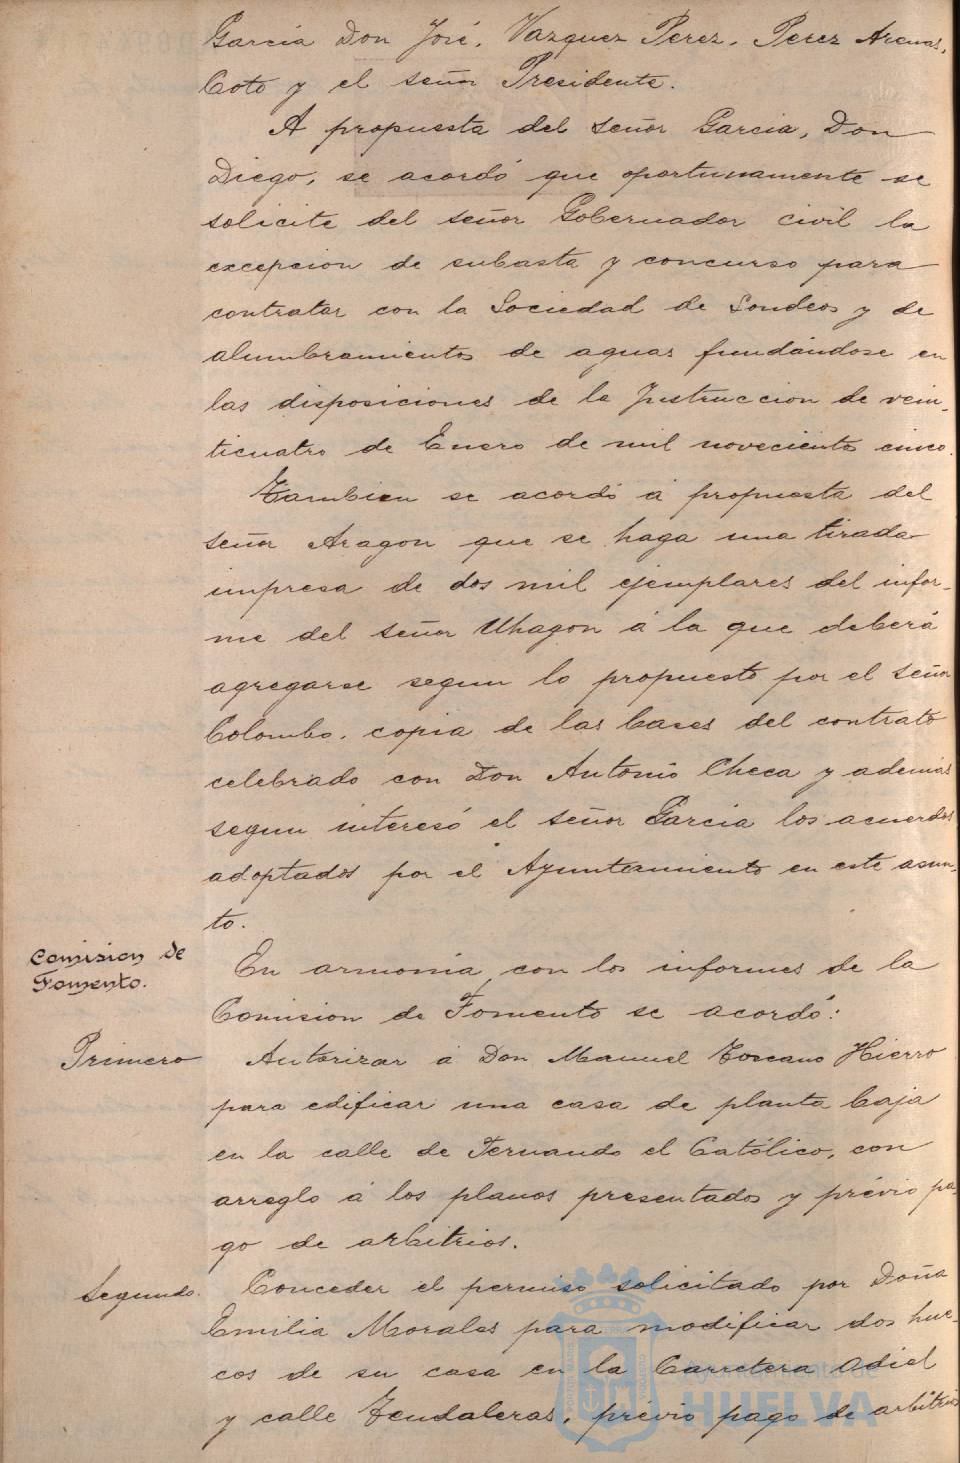 Garcia Don José, Vazquez Perez, Perez Arenas,
Coto y el señor Presidente.
A propuesta del señor Garcia, Don
Diego, se acordó que oportunamente se
solicite del señor Gobernador civil la
excepcion de subasta y concurso para
contratar con la Sociedad de Sondeos y de
alumbramientos de aguas fundándose en
las disposiciones de la Instruccion de vein-
ticuatro de Enero de mil novecientos cinco.
Tambien se acordó á propuesta del
señor Aragon que se haga una tirada
impresa de dos mil ejemplares del infor-
me del señor Uhagon á la que deberá
agregarse segun lo propuesto por el señor
Colombo, copia de las bases del contrato
celebrado con Don Antonio Checa y además
segun interesó el señor Garcia los acuerdos
adoptados por el Ayuntamiento en este asun-
to.
Comision de
Fomento.
En armonia con los informes de la
Comision de Fomento se acordó:
Primero
Autorizar á Don Manuel Toscano Hierro
para edificar una casa de planta baja
en la calle de Fernando el Católico, con
arreglo á los planos presentados y prévio pa-
go de arbitrios.
Segundo.
Conceder el permiso solicitado por Doña
Emilia Morales para modificar dos hue-
cos de su casa en la Carretera Odiel
y calle Tendaleras, prévio pago de arbitrios
Ayuntamiento de
HUELVA